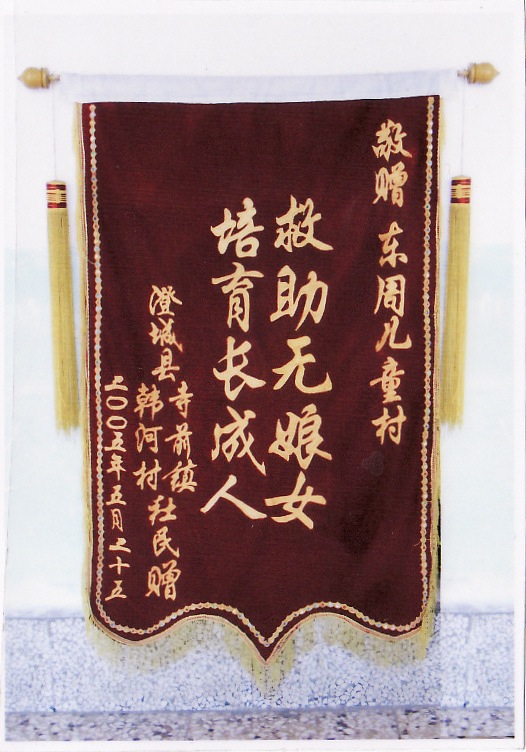 敬赠 东周儿童村
救助无娘女
培育长成人
澄城县寺前镇
韩河村社民赠
二〇〇五年五月二十五